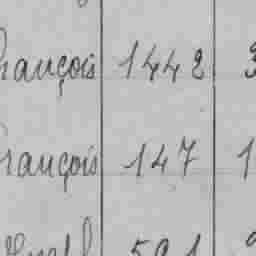 François 1442 3
François 147 1
591